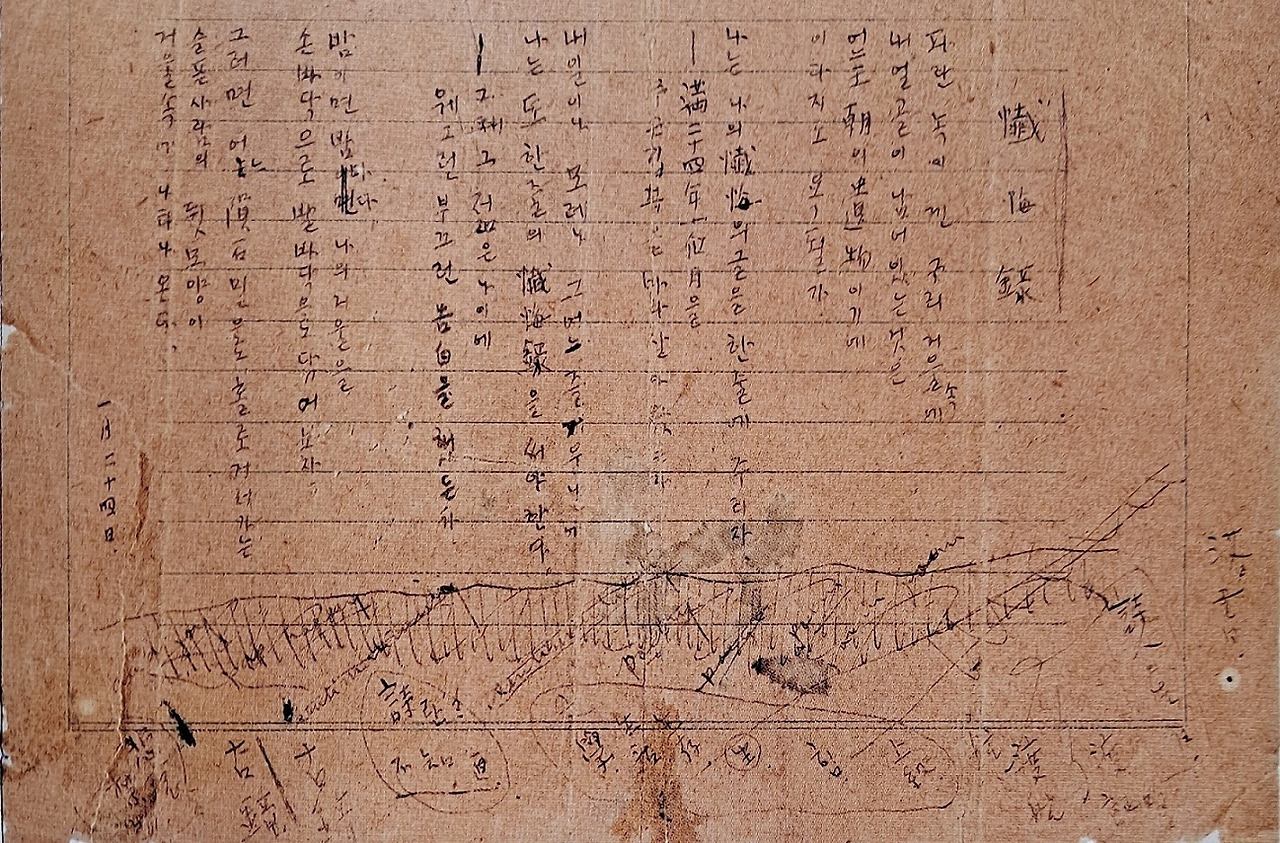 懺悔錄
파란 녹이 낀 구리 거울속에
내 얼골이 남어있는것은
어느 王朝의 遺物이기에
이다지도 욕될가
나는 나의 懺悔의글을 한줄에 주리자.
— 滿二十四年一個月을
무슨깁븜을 바라살아왔든가
내일이나 모레나 그어느 즐거운날에
나는 또 한줄의 懺悔錄을 써야한다.
— 그때 그 젊은나이에
웨그런 부끄런 告白을 했든가
밤이면 밤마다 나의 거울을
손바닥으로 발바닥으로 닦어보자.
그러면 어느 隕石밑으로 홀로거러가는
슬픈사람의 뒷모양이
거울속에 나타나온다.
一月二十四日.
詩란?
不知道
生
힘
古鏡